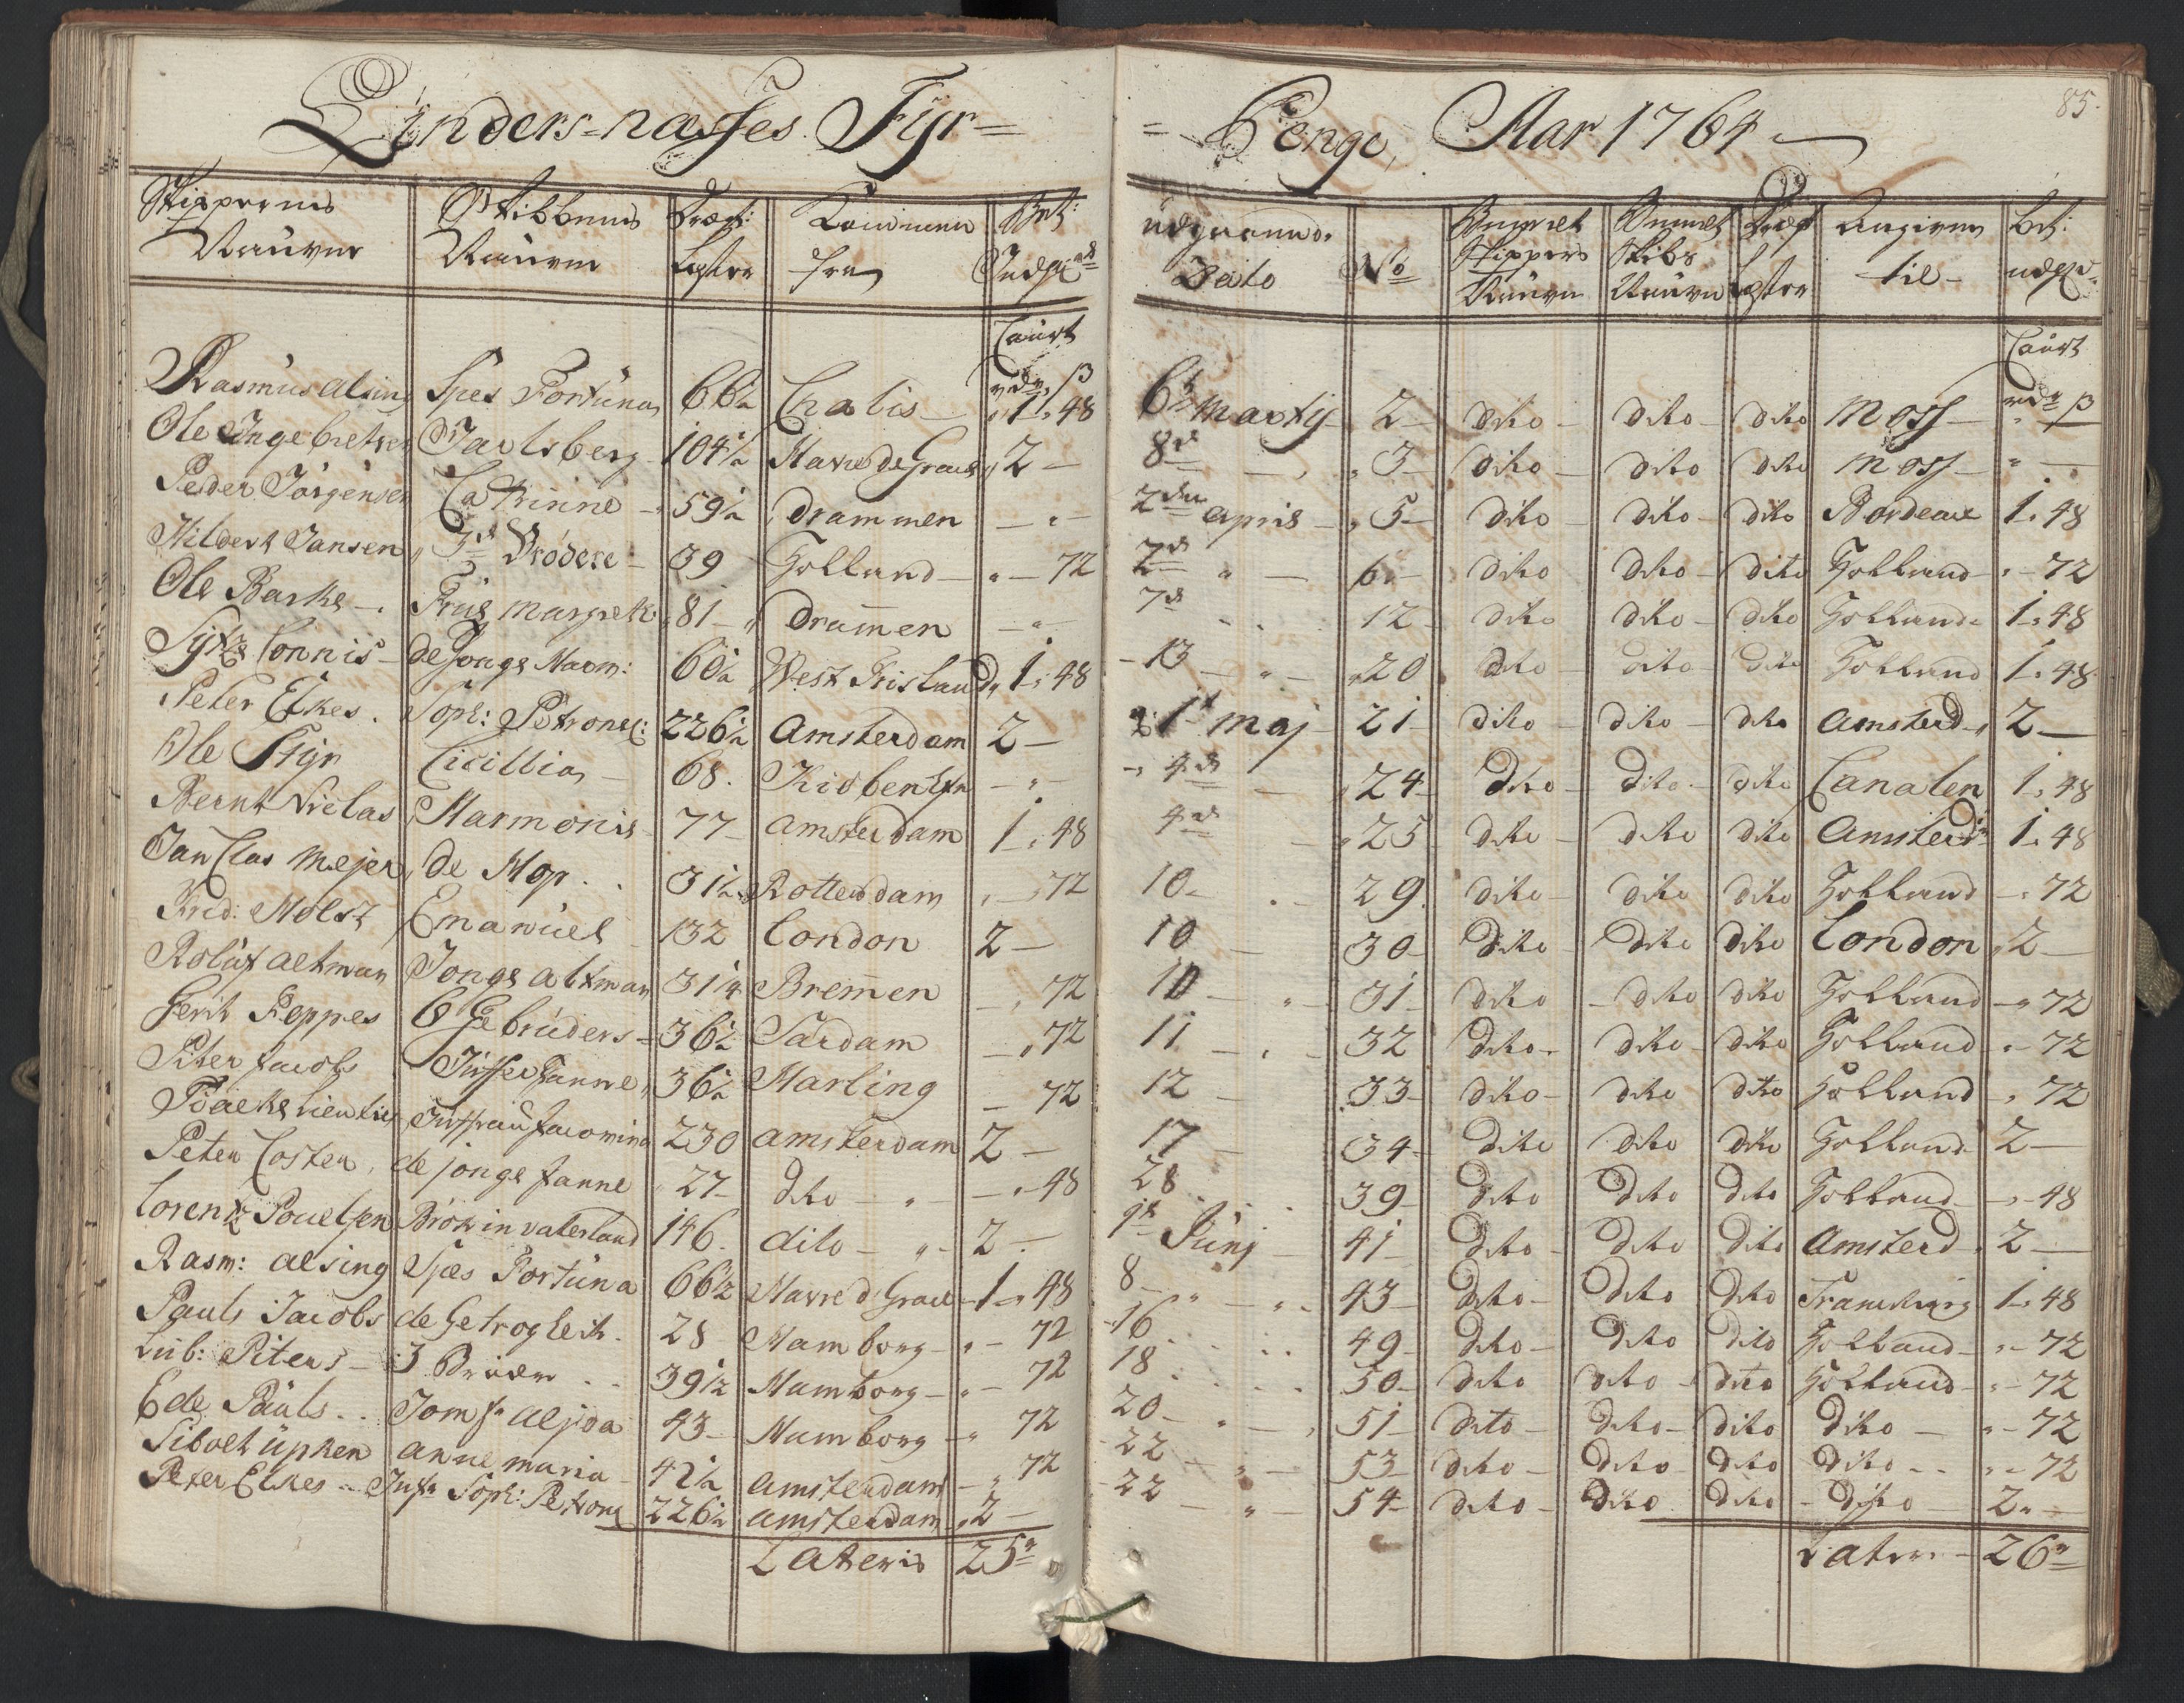 Linders-næsses Fyr=
Skippernes Naufne | Skibbenes Naufne | Drægt: Læster | Kommen fra | Bet: Indg:
Court
rdr β
Rasmus Alsing | Spes Fortuna | 66½ | Chalis | 1 " 48
Ole Ingebretsen | Jarlsberg | 104½ | Havre de Grace | 2 —
Peder Jörgensen | Catrinne | 59½ | Drammen | — " —
Hilbert Jansen | 3de Brödere | 39 | Holland | " — 72
Ole Barke | Frue Margreth: | 81 | Drammen | — " —
Sytze Connis | de Jonge Harm: | 60½ | West Frisland | 1 " 48
Peter Elkes | Soph: Petronel: | 226½ | Amsterdam | 2 —
Ole Fyr | Cicillia | 68. | Kiøbenhfn | — " —
Bernt Nielas | Harmonie | 77 | Amsterdam | 1 " 48
Jan Clas Mejer | de Hop | 31½ | Rotterdam | " — 72
Fred: Holst | Emanuel | 132 | London | 2 —
Roluf Altman | Jonge Altman | 31¼ | Bremen | — " 72
Gerit Reppes | 6 Gebrüders | 36½ | Sardam | — " 72
Piter Jacobs | Juffer Janne | 36½ | Harling | — 72
Juffrau Jacomina | 230 | Amsterdam | 2 —
Peter Costen | de jonge Janne | 27 | dito | — " 48
Lorentz Pouelsen | Brök in vaterland | 146. | dito | 2 . —
Rasm: Alsing | Spes Fortuna | 66½ | Havre d Grace | 1 " 48
Pauls Jacobs | de Getrogheit. | 28 | Hamborg | " — 72
Lüb: Piters | 3 Brüder | 39½ | Hamborg | " — 72
Ede Pauls | Jomfr Aljda | 43 | Hamborg | " 72
Sibolt üpken | Anne Maria | 42½ | Amsterdam | — " 72
Peter Elkes | Jufr Soph: Petrone | 226½ | Amsterdam | " 2 —
Lateris | 25 r
= Penge, Aar 1764
85.
Udgaaende Dato | No | Anmelt Skippers Naufn | Anmelt Skibs Naufn | Dræg Læster | Angiven til | Bet: udg:
Court
rdr β
6t Martij | 2 | dito | dito | dito | Moss | " —
8d | 3 | dito | dito | dito | Moss | " —
2den April | 5 | dito | dito | dito | Bordeaux | 1 " 48
2d " | 6 | dito | dito | dito | Holland | " — 72
7d | 12 | dito | dito | dito | Holland | 1 " 48
13 " | 20 | dito | dito | dito | Holland | 1 " 48
1t Maj | 21 | dito | dito | dito | Amsterd | 2 —
4d | 24 | dito | dito | dito | Canalen | 1 " 48
4d | 25 | dito | dito | dito | Amsterdm | 1 " 48
10 | 29 | dito | dito | dito | Holland | — " 72
10 | 30 | dito | dito | dito | London | 2 —
10 | 31 | dito | dito | dito | Holland | — " 72
11 | 32 | dito | dito | dito | Holland | " — 72
12 | 33 | dito | dito | dito | Holland | " 72
17 | 34 | dito | dito | dito | Holland | 2 —
28 | 39 | dito | dito | dito | Holland | — " 48
1t Junj | 41 | dito | dito | dito | Amsterd | 2 —
8 " | 43 | dito | dito | dito | 1 " 48
16 | 49 | dito | dito | dito | Holland | " — 72
18 | 50 | dito | dito | dito | Holland | " — 72
20 | 51 | dito | dito | dito | dito | " — 72
22 | 53 | dito | dito | dito | dito | " — 72
22 | 54 | dito | dito | dito | dito | 2 " —
Later | 26 r